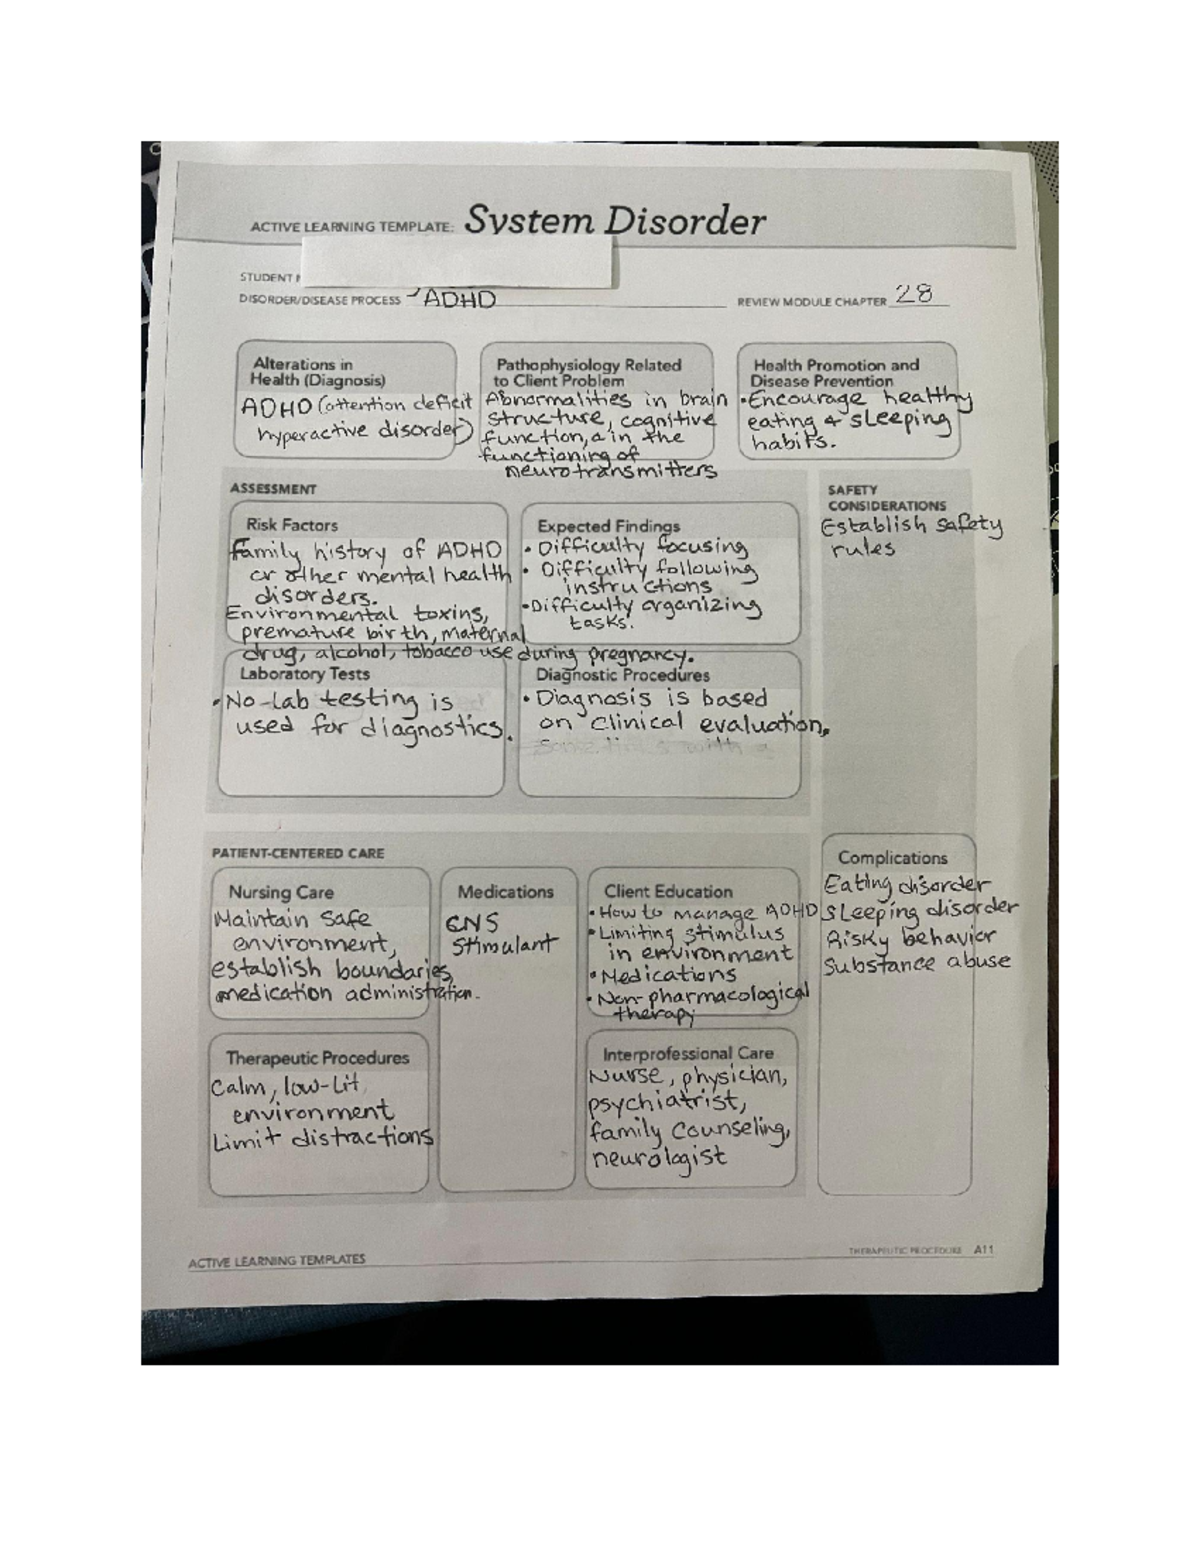 ACTIVE LEARNING TEMPLATE: System Disorder
STUDENT
DISORDER/DISEASE PROCESS ADHD
REVIEW MODULE CHAPTER 28
Alterations in
Health (Diagnosis)
ADHD (attention deficit
hyperactive disorder)
Pathophysiology Related
to Client Problem
Abnormalities in brain
structure, cognitive
function, & in the
functioning of
neurotransmitters
Health Promotion and
Disease Prevention
• Encourage healthy
eating & sleeping
habits.
ASSESSMENT
Risk Factors
Family history of ADHD
or other mental health
disorders.
Environmental toxins,
premature birth, maternal
drug, alcohol, tobacco use during pregnancy.
Expected Findings
• Difficulty focusing
• Difficulty following
instructions
• Difficulty organizing
tasks.
Laboratory Tests
• No-lab testing is
used for diagnostics.
Diagnostic Procedures
• Diagnosis is based
on clinical evaluation.
SAFETY
CONSIDERATIONS
Establish safety
rules
PATIENT-CENTERED CARE
Nursing Care
Maintain safe
environment,
establish boundaries,
medication administration.
Medications
CNS
Stimulant
Client Education
• How to manage ADHD
• Limiting stimulus
in environment
• Medications
• Non-pharmacological
therapy
Therapeutic Procedures
Calm, low-lit
environment
Limit distractions
Interprofessional Care
Nurse, physician,
psychiatrist,
family counseling,
neurologist
Complications
Eating disorder
Sleeping disorder
Risky behavior
Substance abuse
ACTIVE LEARNING TEMPLATES
THERAPEUTIC PROCEDURE A11